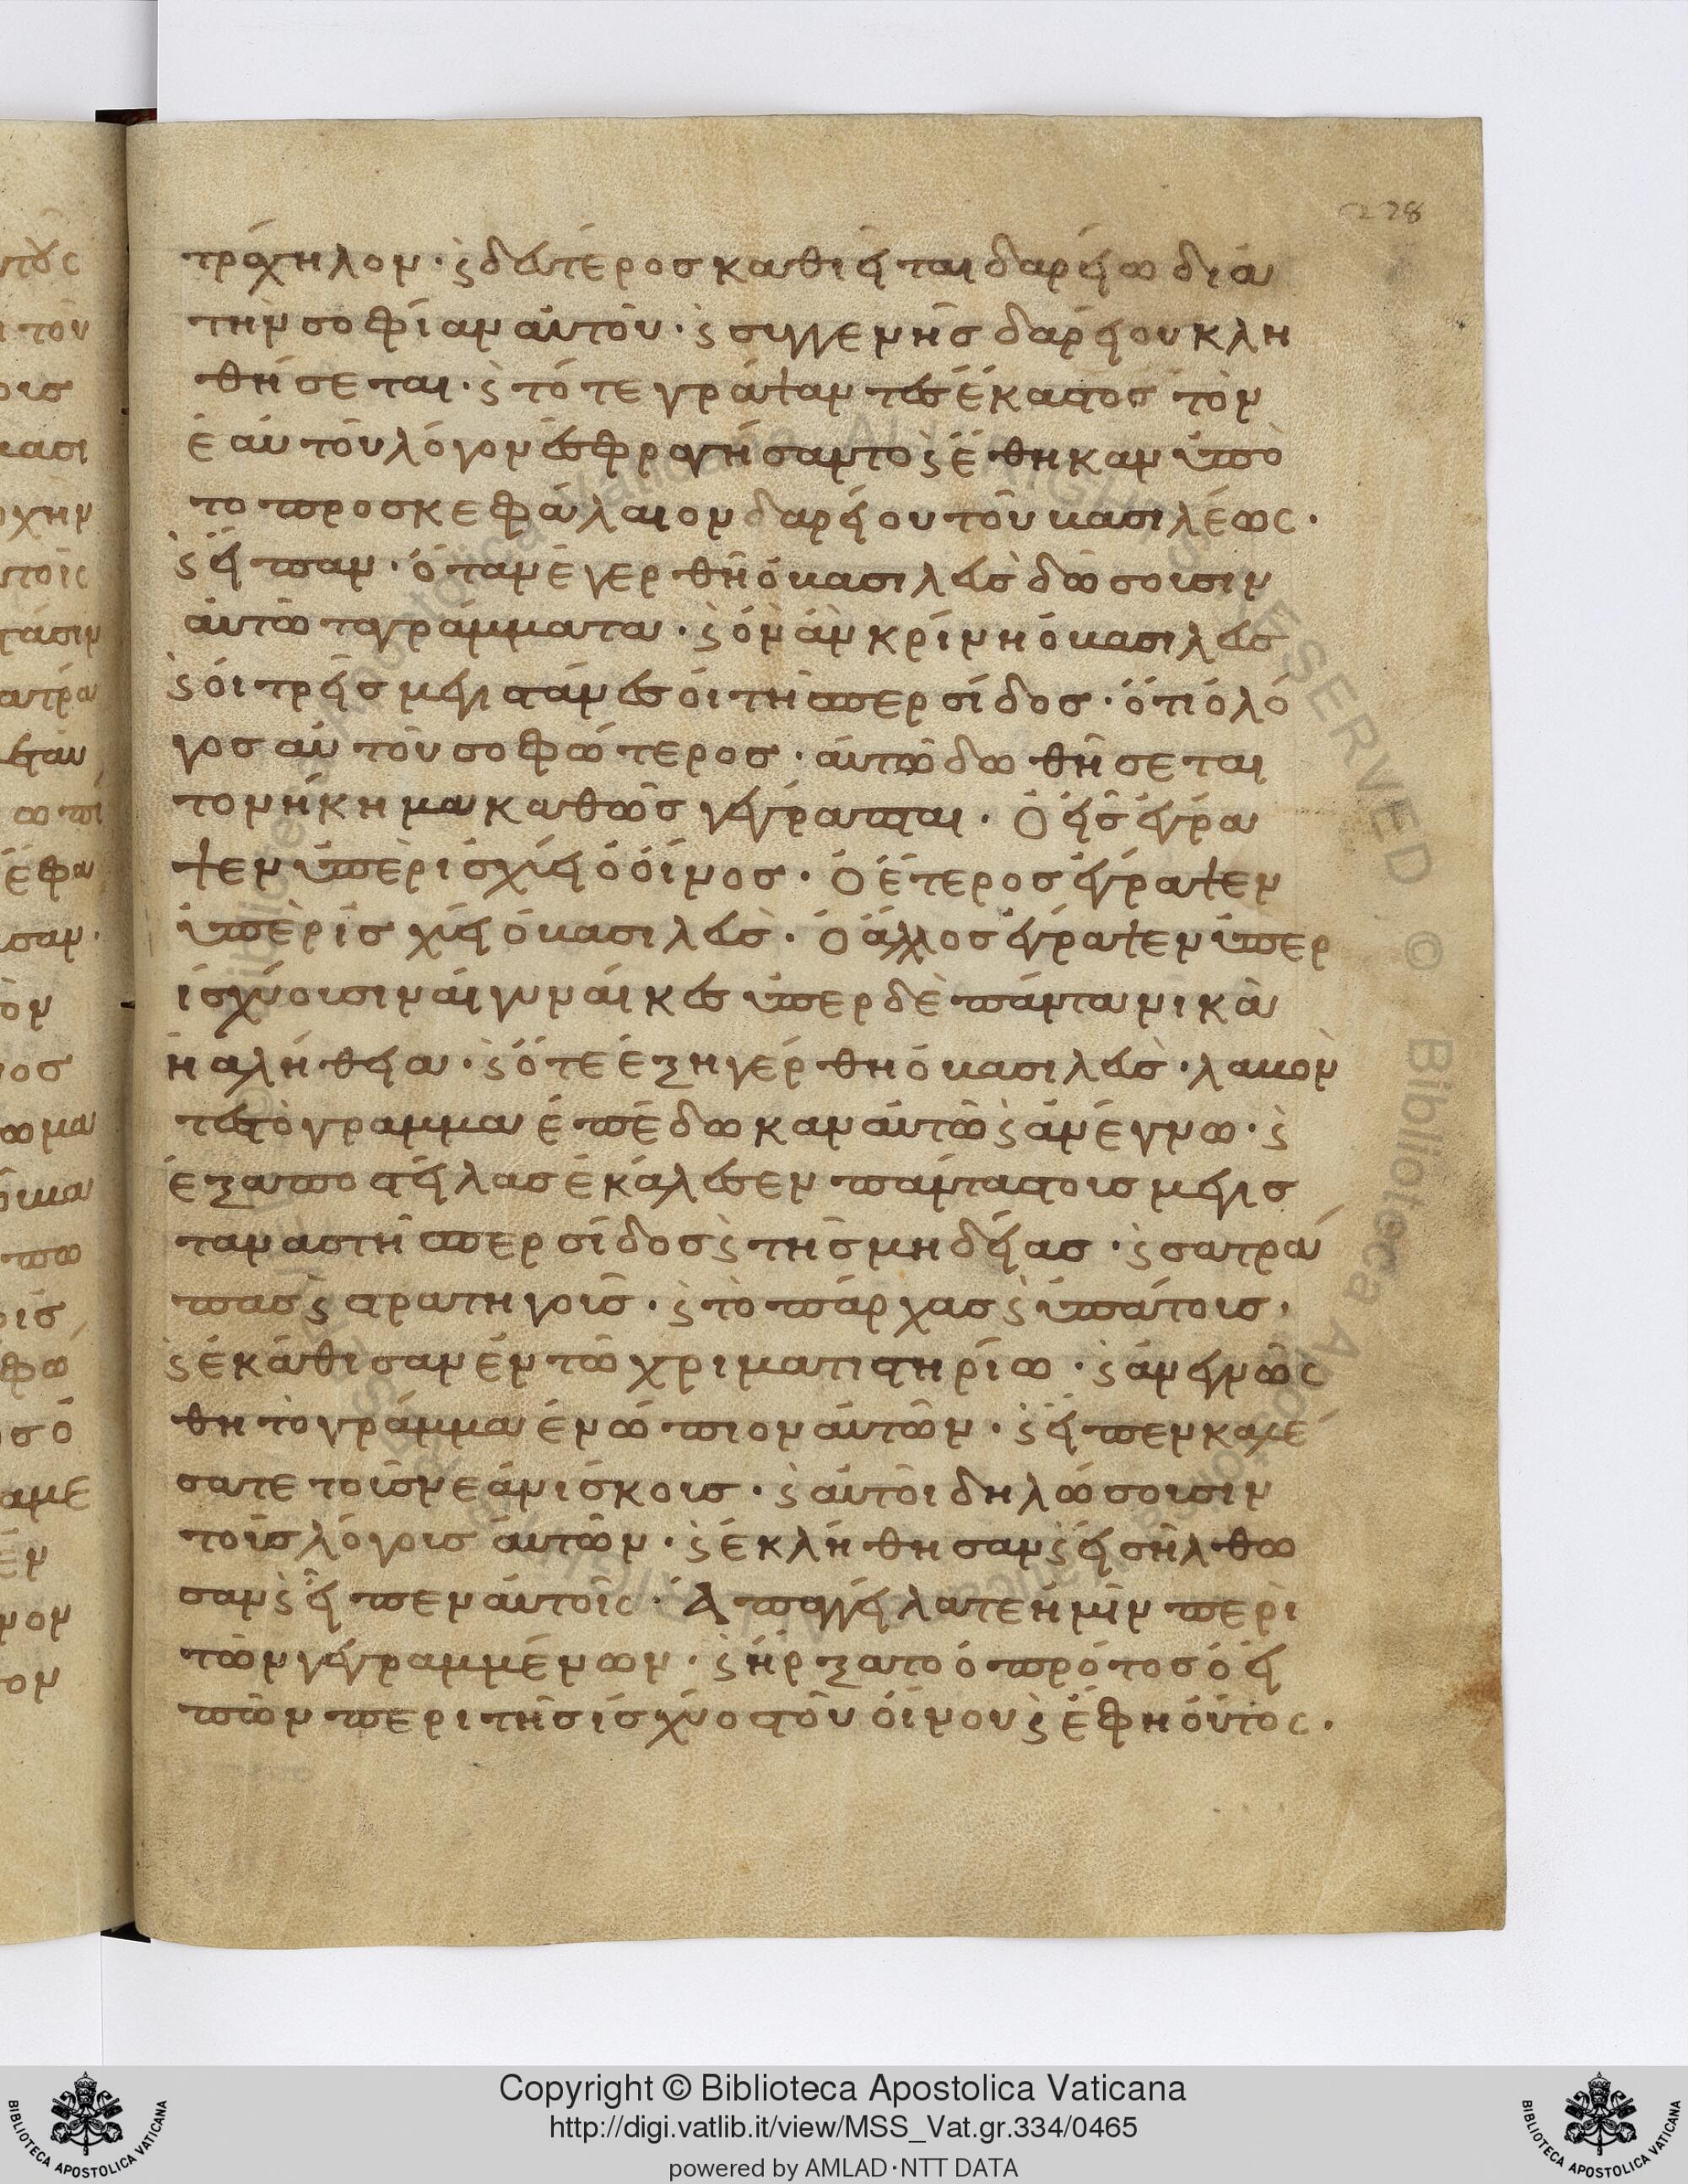 228
τράχηλον· ϛ δεύτερος καθιεῖται δαρείω διὰ
τὴν σοφίαν αὐτοῦ· ϛ συγγενὴς δαρείου κλη
θήσεται· ϛ τότε γράψαντες ἕκαστος τὸν
ἑαυτοῦ λόγον ἐσφραγήσαντο ϛ ἔθηκαν ὑπὸ
το προσκεφάλαιον δαρείου τοῦ βασιλέως·
ϛ εἶπαν· ὅταν ἐγερθῆ ὁ βασιλεὺς δώσουσιν
αὐτῶ τα γράμματα· ϛ ὃν ἂν κρίνη ὁ βασιλεὺς
ϛ οἱ τρεῖς μεγιστάνες οἱ τῆς περσίδος· ὅτι ὁ λό
γος αὐτοῦ σοφώτερος· αὐτῶ δωθήσεται
το νήκημα καθὼς γέγραπται· Ὁ εἷς ἔγρα
ψεν ὑπὲρισχύει ὁ οἶνος· Ὁ ἕτερος ἔγραψεν
ὑπὲρισχύει ὁ βασιλεὺς· Ὁ ἄλλος ἔγραψεν ὑπερ
ισχύουσιν αἱ γυναίκες ὑπερ δὲ πάντα νικὰ
ἡ αλήθεια· ϛ ὅτε ἐξηγέρθη ὁ βασιλεὺς· λαβὸν
τες τὸ γραμμα ἐπέδωκαν αὐτῶ ϛ ἀνέγνω· ϛ
ἐξαποστείλας ἐκάλεσεν πάντας τους μεγισ
τανας τῆς περσίδος ϛ τῆς μηδείας· ϛ σατρά
πας ϛ στρατηγοὺς· ϛ τὸπάρχας ϛ ὑπάτους·
ϛ ἐκάθισαν ἐν τῶ χριματιστηρίω· ϛ ἀνεγνῶσ
θη τὸ γράμμα ἐνώπιον αὐτῶν· ϛ εἶπεν καλέ
σατε τοὺς νεάνίσκους· ϛ αὐτοὶ δηλώσουσιν
τοὺς λόγους αὐτῶν· ϛ ἐκλήθησαν ϛ εἰσῆλθω
σαν ϛ εἶπεν αὐτοῖς· Ἀπαγγείλατε ἡμῖν περὶ
τῶν γεγραμμένων· ϛ ἤρξατο ὁ πρότος ὁ εἰ
πῶν περι τῆς ισχύος τοῦ οἴνου ϛ ἔφη οὕτος·
Copyright © Biblioteca Apostolica Vaticana
http://digi.vatlib.it/view/MSS_Vat.gr.334/0465
powered by AMLAD·NTT DATA